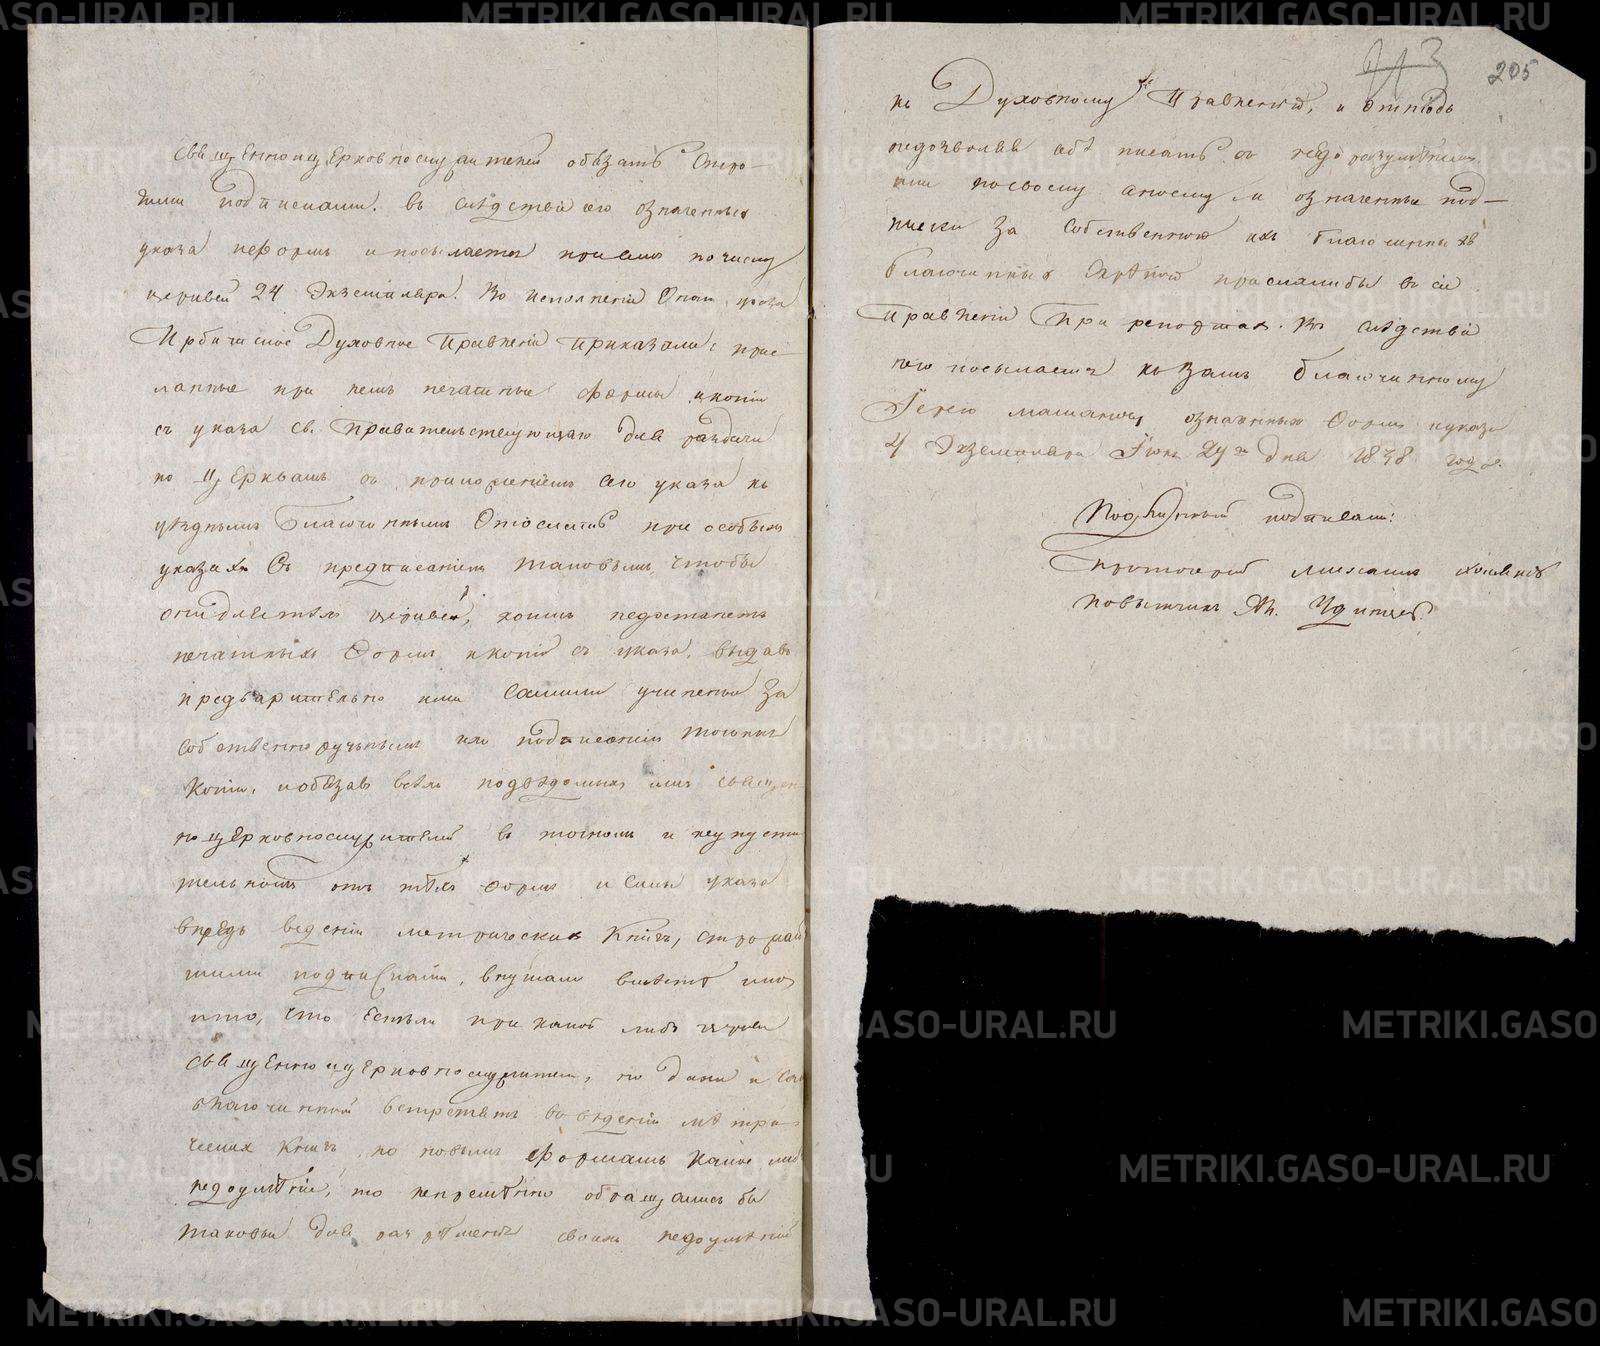 священноцерковнослужителей обязать стро-
жими подписками. въ слѣдствіе сего означенныя
указа и формъ и посылается при семъ по числу
церквей 24 Экземпляра. Во исполненіе Онаго указа
Ирбитское Духовное Правленіе Приказали: прис-
ланные при немъ печатные формы и копіи
съ указа Св. Правительствующаго для раздачи
по Церквамъ съ приложеніемъ сего указа къ
уѣзднымъ Благочиннымъ Отослать при особыхъ
указахъ Съ предписаніемъ таковымъ, чтобы
они для тѣхъ церквей, коимъ недостанетъ
печатныхъ Формъ и копій съ указа, выдавъ
предварительно ими самими учиненныя за
собственноручнымъ ихъ подписаніемъ точныя
Копіи, и обязавъ всѣхъ подвѣдомыхъ имъ священ
ноцерковнослужителей въ точномъ и неупусти
тельномъ отъ тѣхъ формъ и силы указа
впредь веденіи метрическихъ Книгъ, строжай
шими подписками, внушали вмѣстѣ
и то, что Естьли при какой либо церкви
священноцерковнослужители, но даже и сами
благочинной встретятъ въ веденіи метри-
ческихъ Книгъ по новымъ Формамъ какое либо
недоумѣніе, то непремѣнно обращались бы
таковыя для разрѣшенія своихъ недоумѣній
205
къ Духовному Правленію, и отнюдь
недозволяя себѣ писать въ недоразумѣніи
или посвоему а посему и означенные под-
писки за Собственною ихъ благочинныхъ
благочинныя прислали бы въ сіе
Правленіе При репортахъ. Въ слѣдствіе
чего посылается къ вамъ благочинному
Іерею означенныхъ Формъ и указа
4 Экземпляра Іюня 24го дня 1838 года.
Подлинный подписали:
Протоіерей Михаилъ
Повытчикъ Удинцевъ.
METRIKI.GASO-URAL.RU